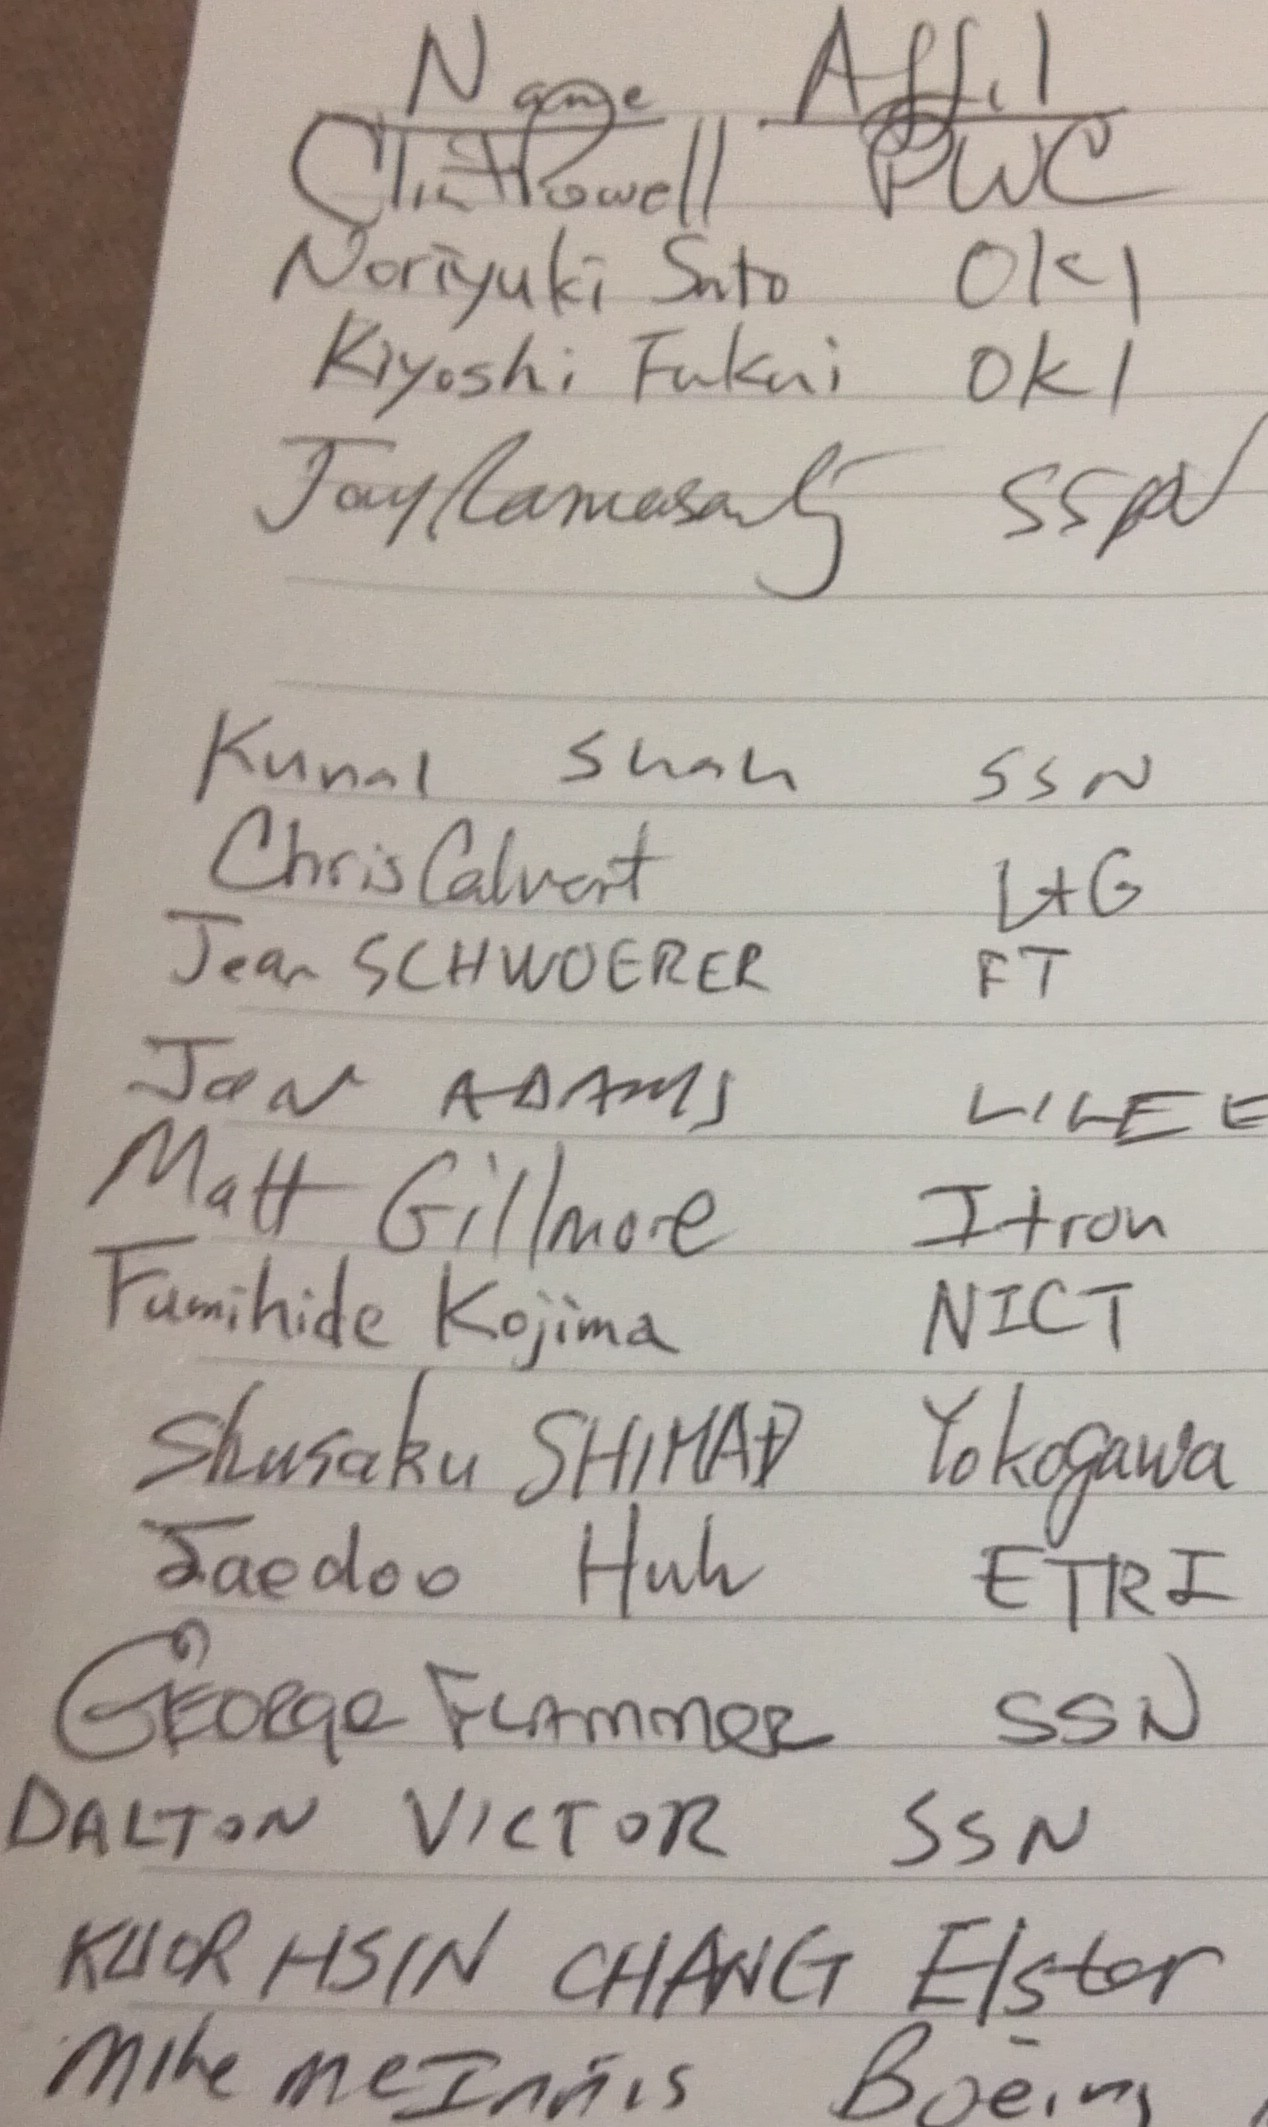 Name Affil
Clint Powell PWC
Noriyuki Sato OKI
Kiyoshi Fukui OKI
Jay Ramasastry SSN
Kunal Shah SSN
Chris Calvert L+G
Jean SCHWOERER FT
Jon ADAMS LILEE
Matt Gillmore Itron
Fumihide Kojima NICT
Shusaku SHIMADA Yokogawa
Jaedoo Huh ETRI
GEORGE FLAMMER SSN
DALTON VICTOR SSN
KUOR HSIN CHANG Elster
Mike McInnis Boeing